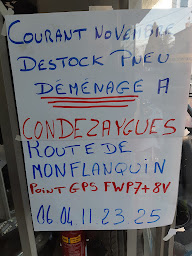 COURANT NOVEMBRE
DESTOCK PNEU
DÉMÉNAGE A
CONDEZAYGUES
ROUTE DE
MONFLANQUIN
POINT GPS FWP7+8V
06 04 11 23 25